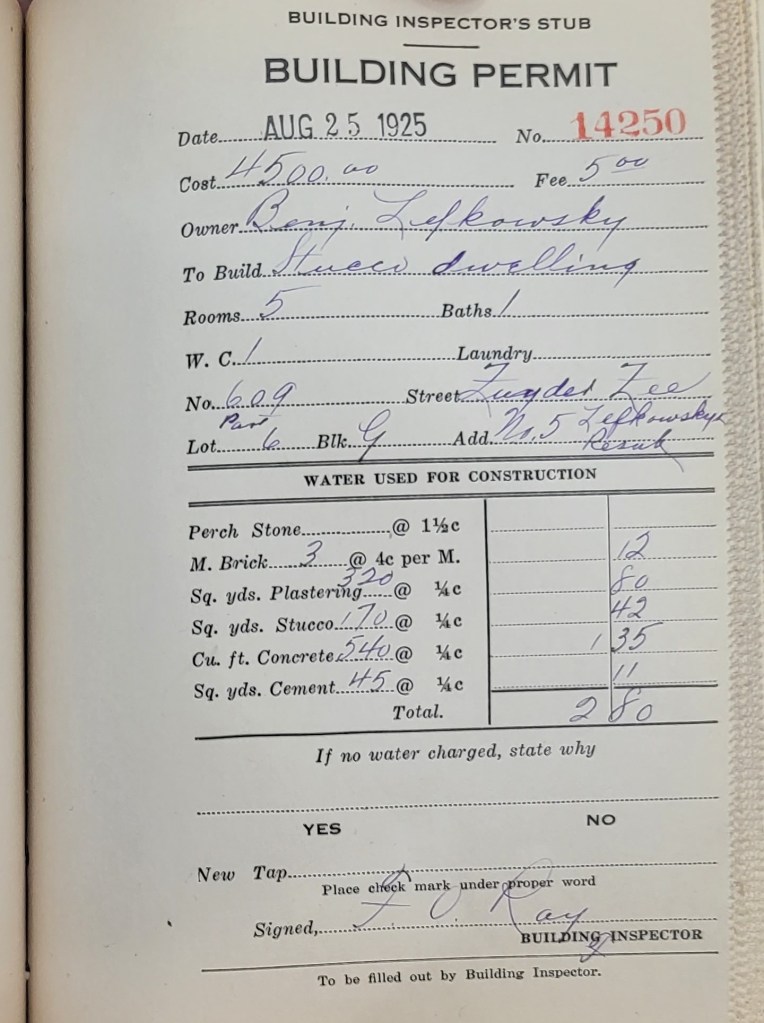 BUILDING INSPECTOR'S STUB
BUILDING PERMIT
Date AUG 25 1925 No. 14250
Cost 4500.00 Fee 5 00
Owner Benj. Lefkowsky
To Build Stucco dwelling
Rooms 5 Baths 1
W. C. 1 Laundry
No. 609 Street Zuyder Zee
Part
Lot 6 Blk. G Add. No. 5 Lefkowskys
Resub
WATER USED FOR CONSTRUCTION
Perch Stone @ 1½c
M. Brick 3 @ 4c per M. 12
Sq. yds. Plastering 320 @ ¼c 80
Sq. yds. Stucco 170 @ ¼c 42
Cu. ft. Concrete 540 @ ¼c 1 35
Sq. yds. Cement 45 @ ¼c 11
Total. 2 80
If no water charged, state why
YES NO
New Tap
Place check mark under proper word
Signed, F. O. Ray
BUILDING INSPECTOR
To be filled out by Building Inspector.